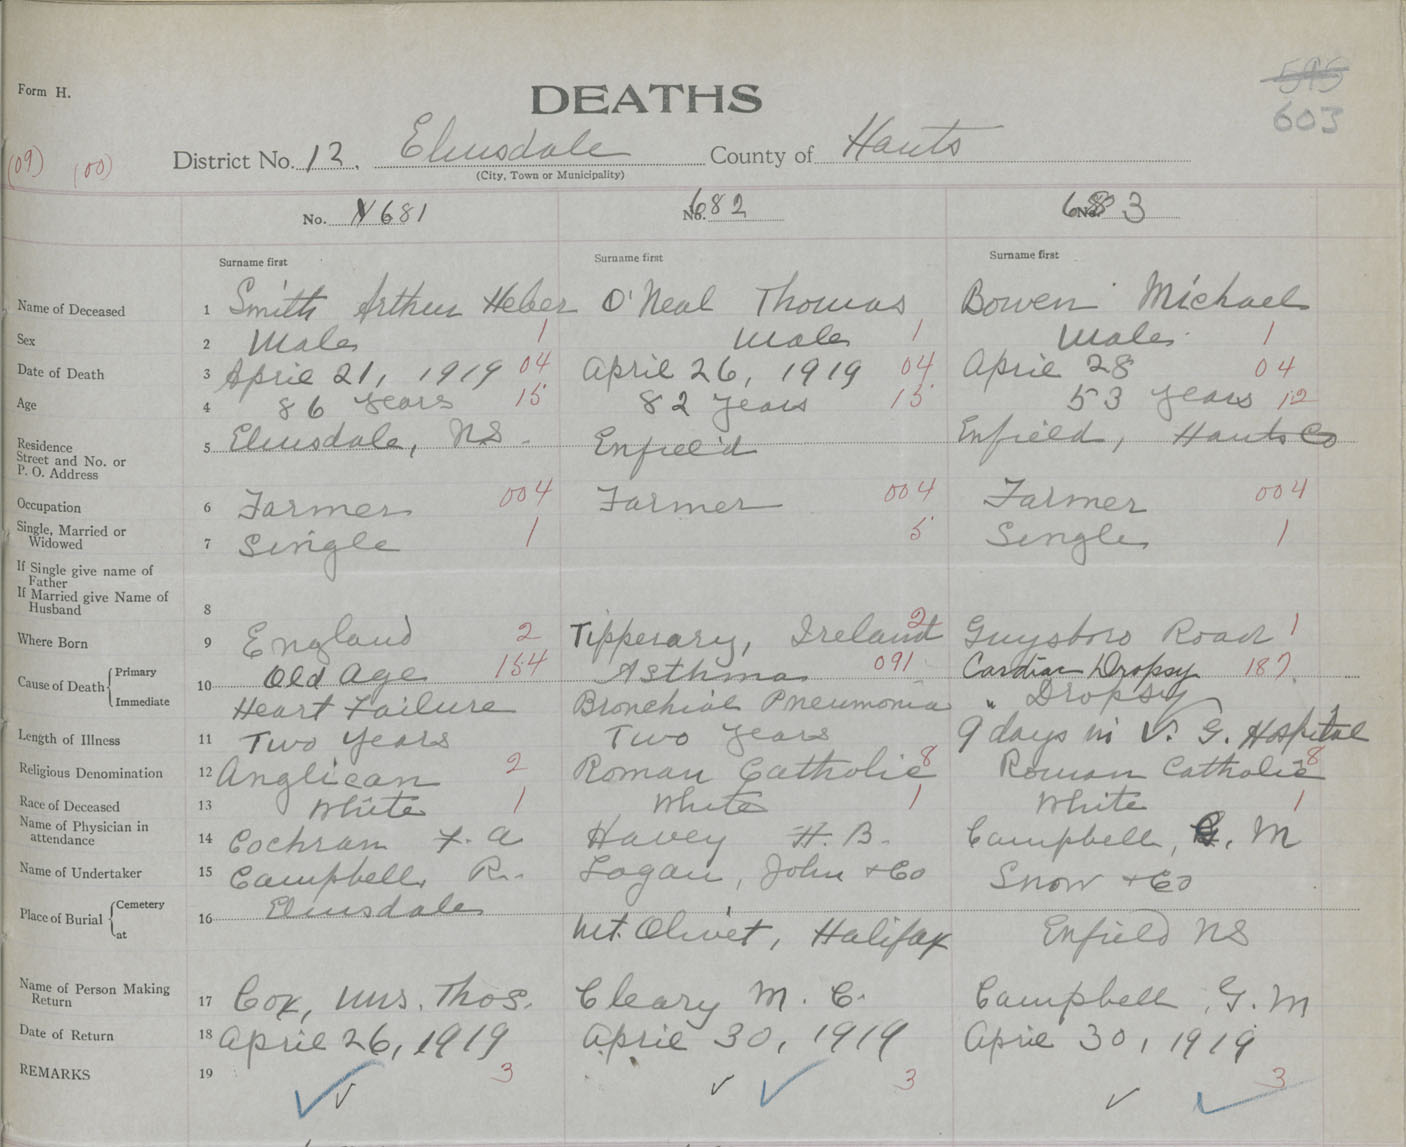 Form H.
DEATHS
595
603
(09) (00) District No. 12. Elmsdale County of Hants
(City, Town or Municipality)
No. 681 No. 682 No. 683
Surname first Surname first Surname first
Name of Deceased 1 Smith Arthur Heber O'Neal Thomas Bowen Michael
Sex 2 Male 1 Male 1 Male 1
Date of Death 3 April 21, 1919 04 April 26, 1919 04 April 28 04
Age 4 86 years 15 82 years 15 53 years 12
Residence
Street and No. or
P. O. Address 5 Elmsdale, NS. Enfield Enfield, Hants Co
Occupation 6 Farmer 004 Farmer 004 Farmer 004
Single, Married or
Widowed 7 Single 1 5 Single 1
If Single give name of
Father
If Married give Name of
Husband 8
Where Born 9 England 2 Tipperary, Ireland 2 Guysboro Road 1
Cause of Death Primary 10 Old Age 154 Asthma 091 Cardiac Dropsy 187
Immediate Heart Failure Bronchial Pneumonia " Dropsy
Length of Illness 11 Two years Two years 9 days in V. G. Hospital
Religious Denomination 12 Anglican 2 Roman Catholic 8 Roman Catholic 8
Race of Deceased 13 White 1 White 1 White 1
Name of Physician in
attendance 14 Cochran F. A Havey H. B. Campbell, G. M
Name of Undertaker 15 Campbell, R. Logan, John + Co Snow + Co
Place of Burial Cemetery 16 Elmsdale
at Mt. Olivet, Halifax Enfield NS
Name of Person Making
Return 17 Cox, Mrs. Thos. Cleary M. C. Campbell, G. M
Date of Return 18 April 26, 1919 April 30, 1919 April 30, 1919
REMARKS 19 3 3 3